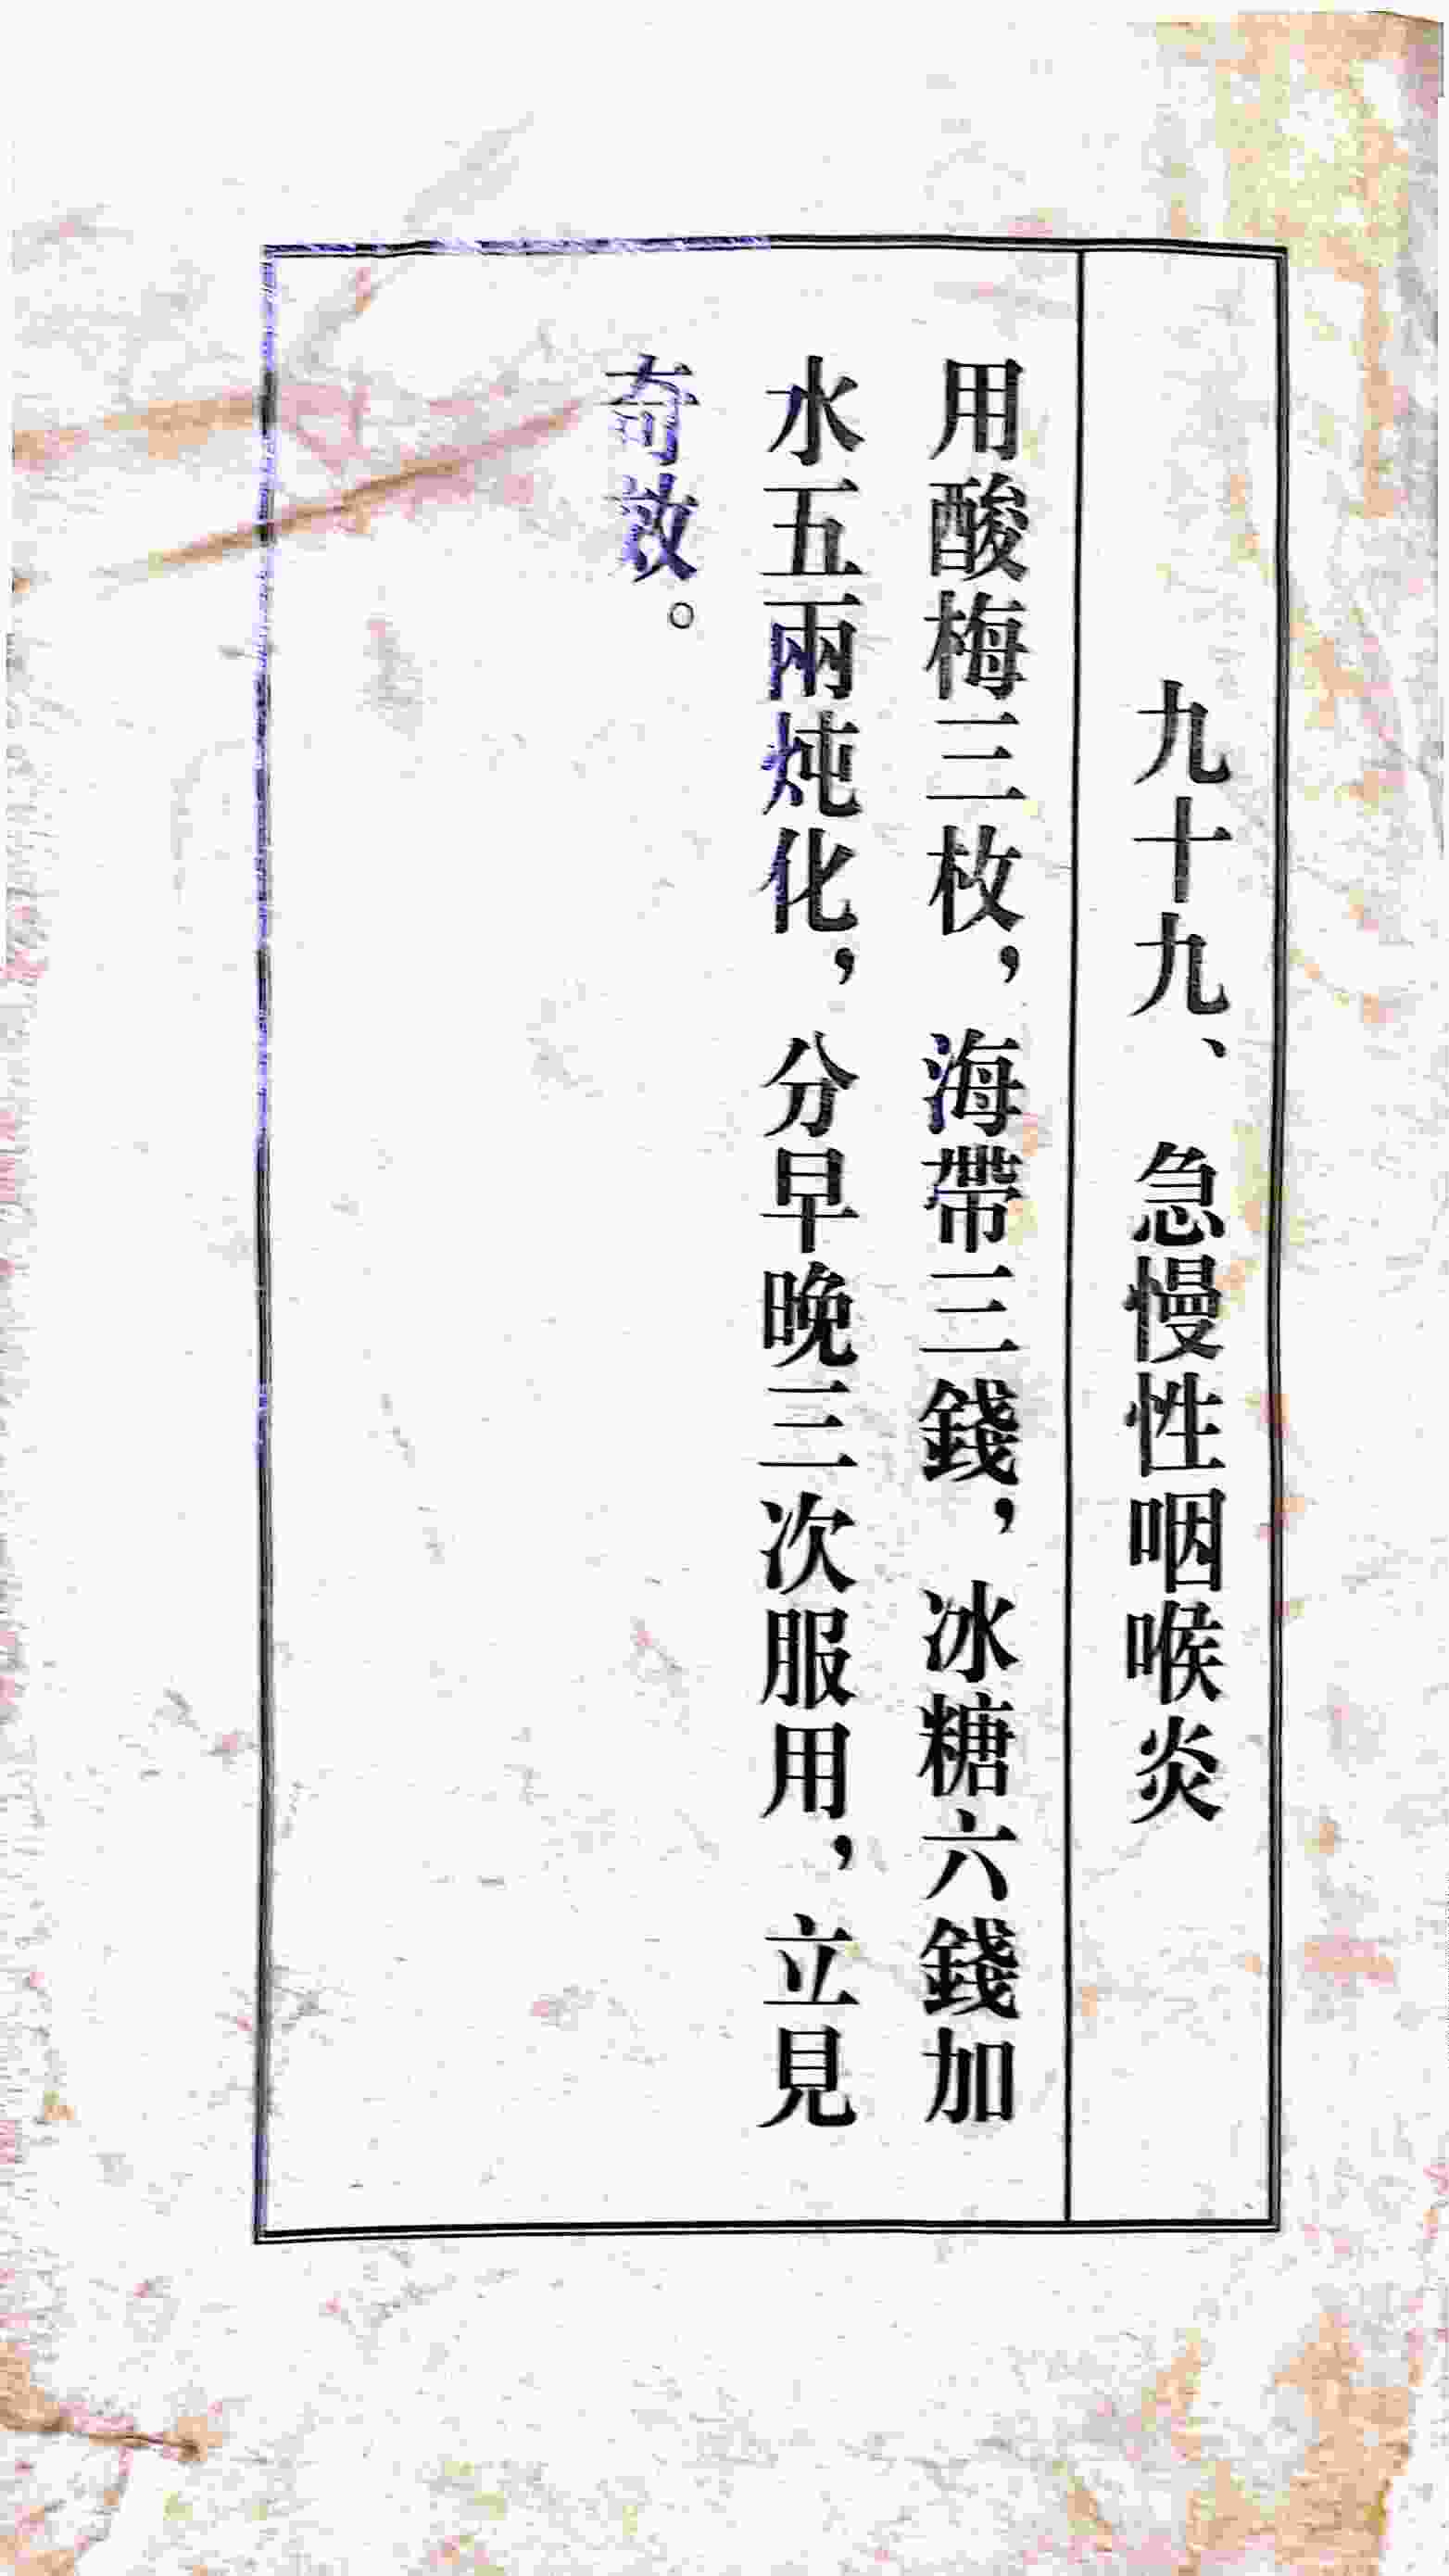 九十九、急慢性咽喉炎
用酸梅三枚，海帶三錢，冰糖六錢加
水五兩炖化，分早晚三次服用，立見
奇效。